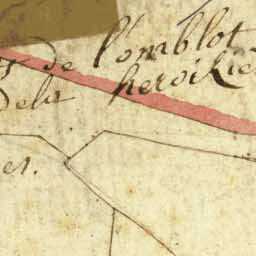 de l'omblot
dela heroikie
es.